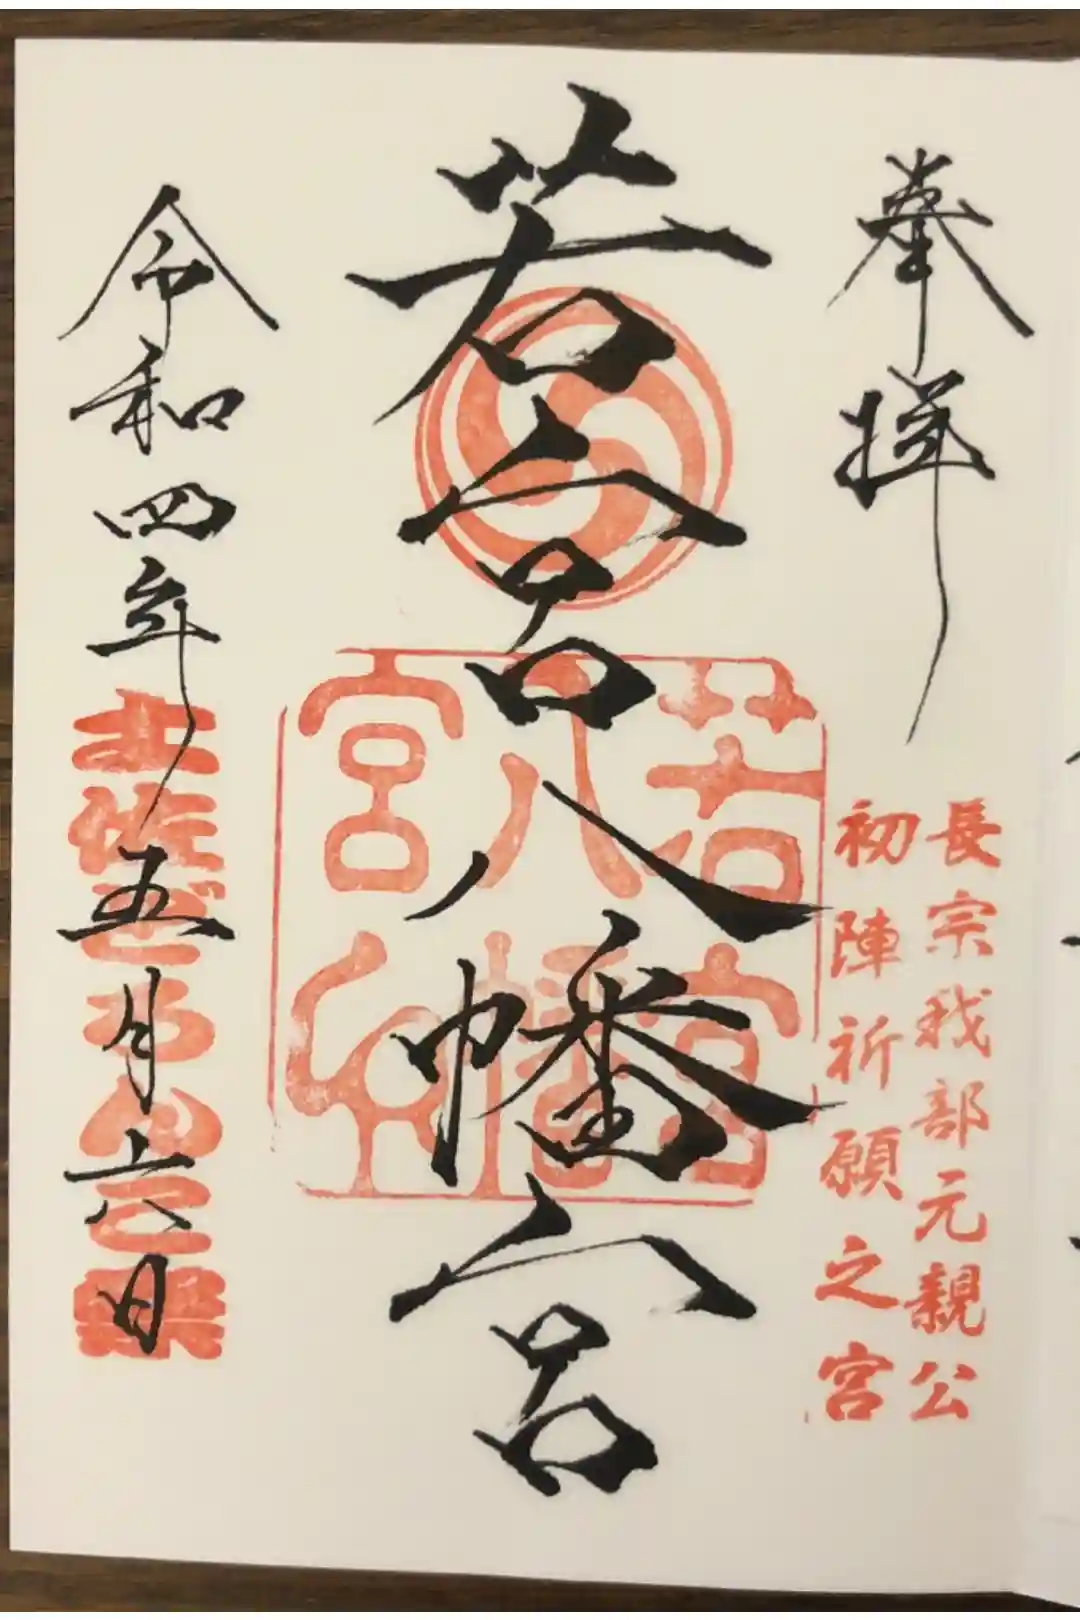 奉拝
長宗我部元親公
初陣祈願之宮
若宮八幡宮
若宮
八幡
宮
令和四年五月六日